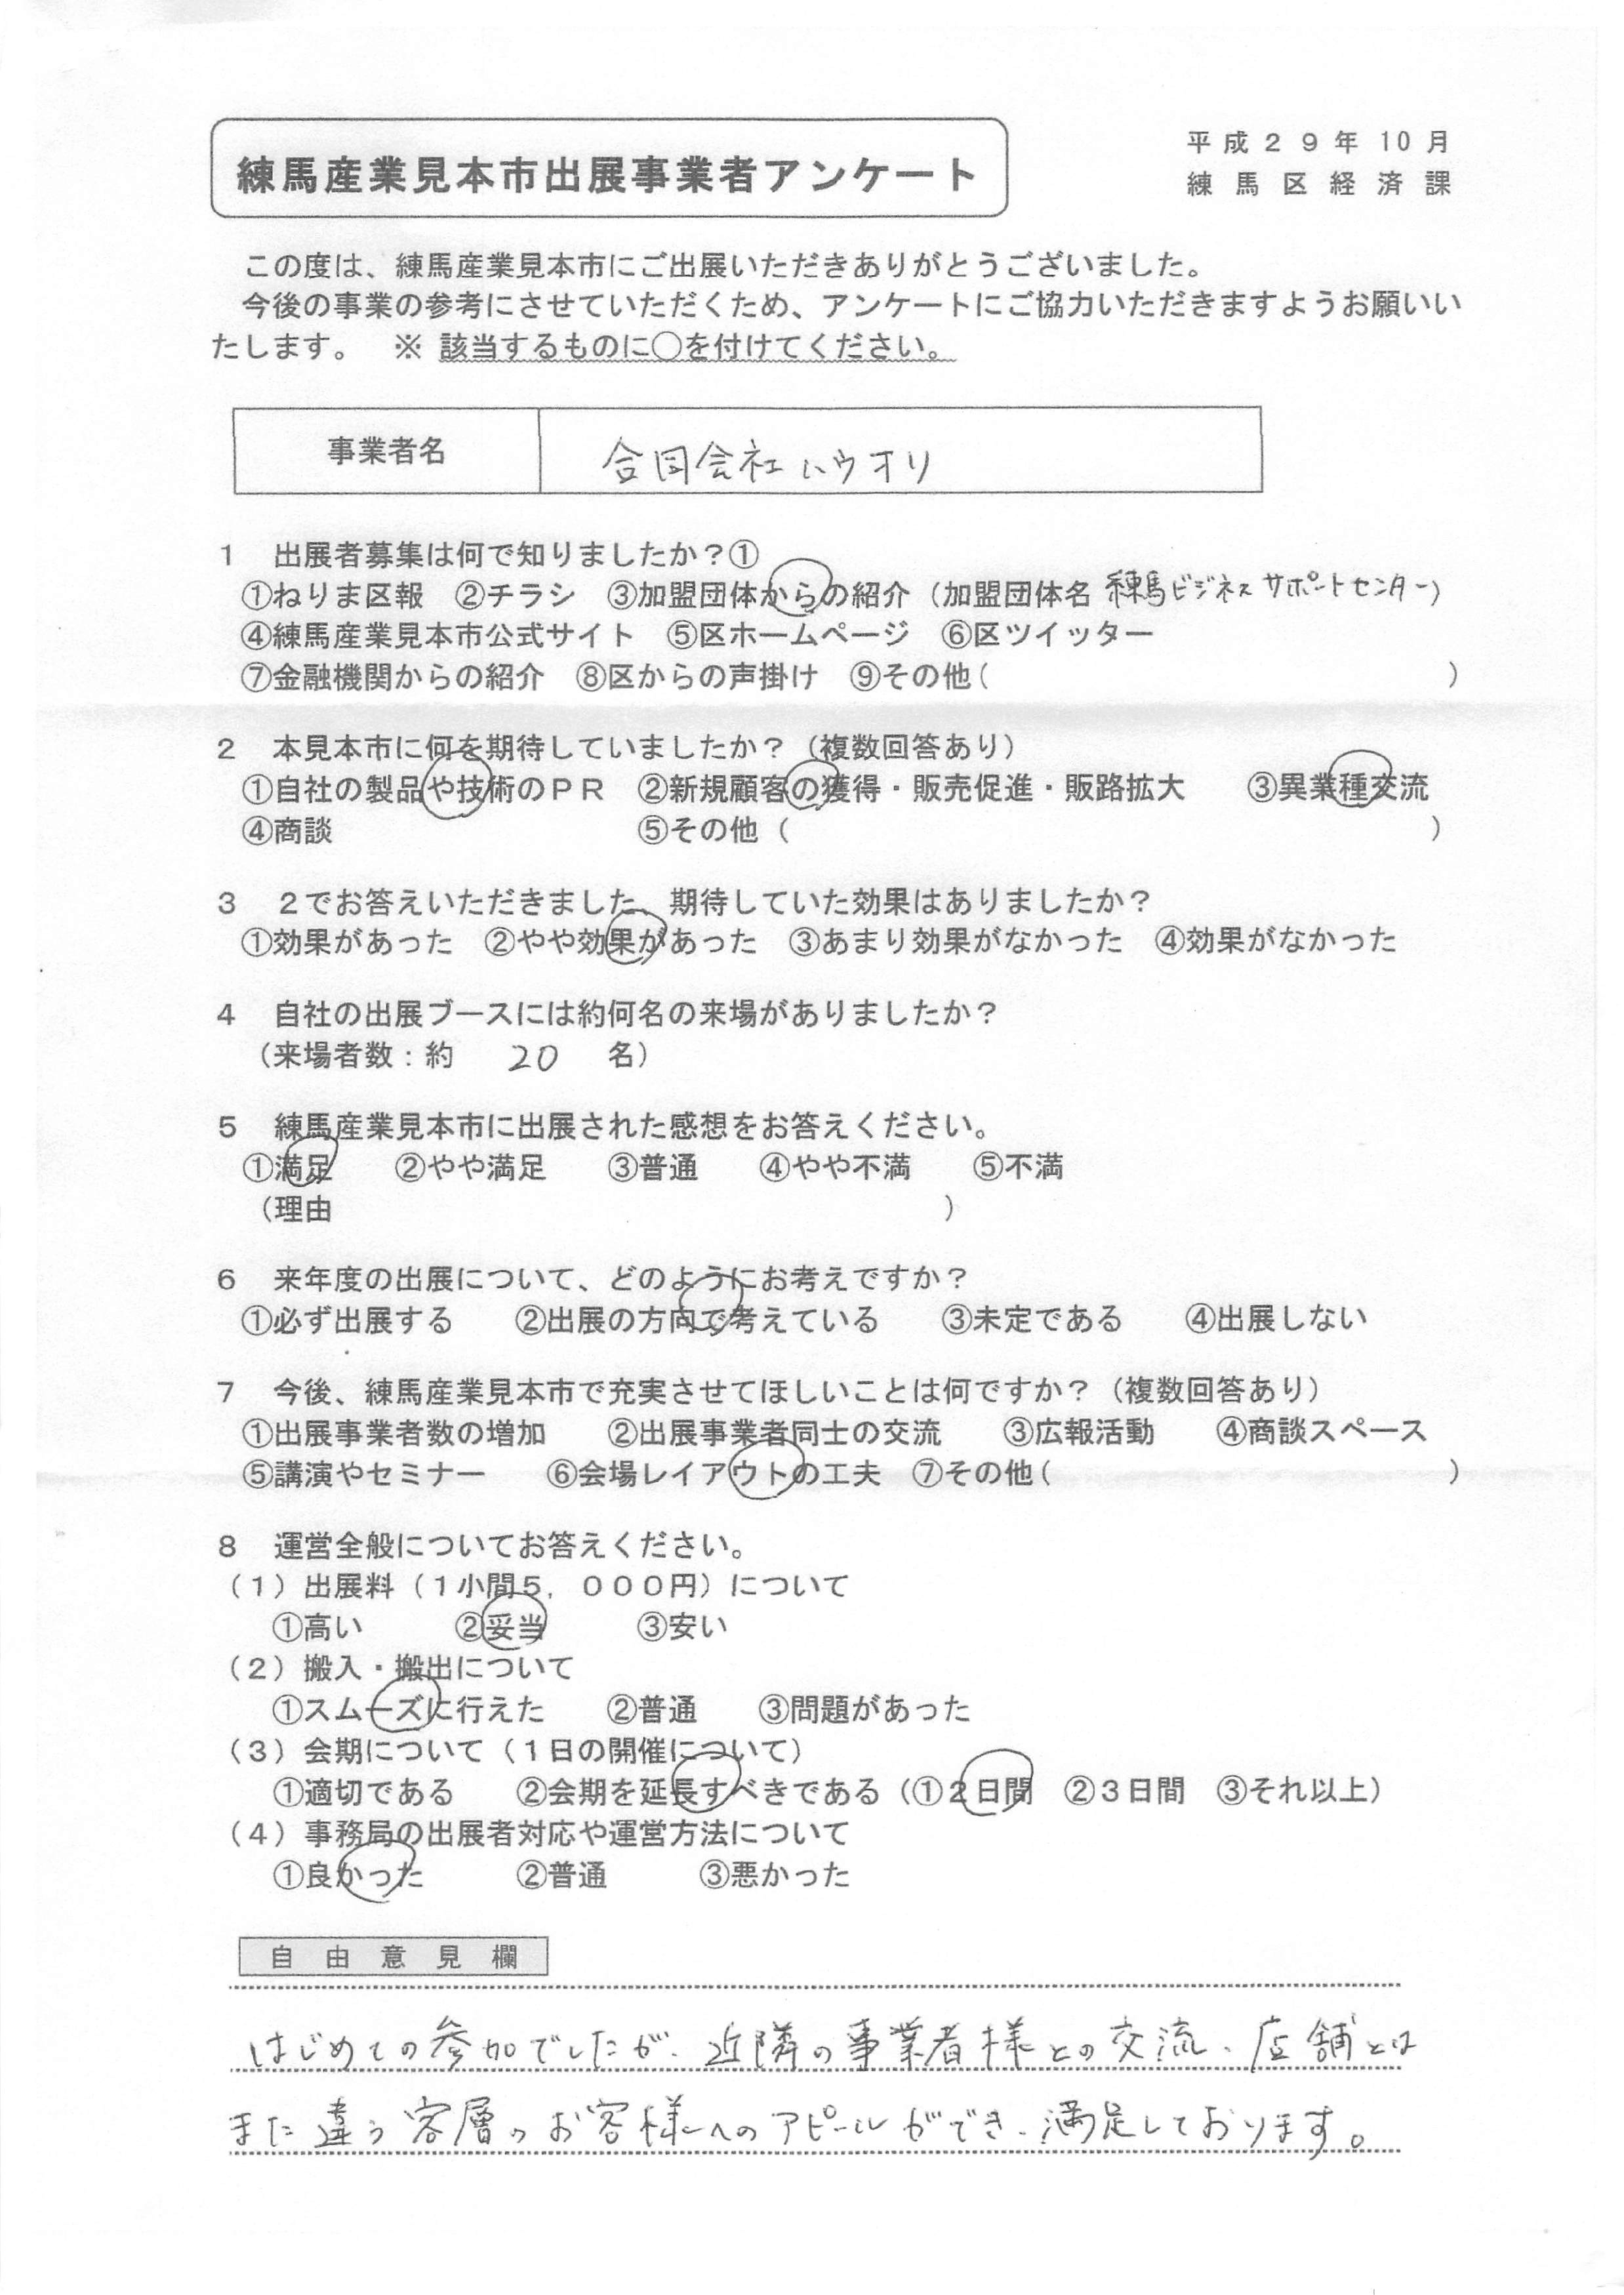 練馬産業見本市出展事業者アンケート
平成29年10月
練馬区経済課
この度は、練馬産業見本市にご出展いただきありがとうございました。
今後の事業の参考にさせていただくため、アンケートにご協力いただきますようお願いい
たします。　※ 該当するものに○を付けてください。
事業者名　合同会社ハウオリ
1　出展者募集は何で知りましたか？①
①ねりま区報　②チラシ　③加盟団体からの紹介（加盟団体名 練馬ビジネスサポートセンター）
④練馬産業見本市公式サイト　⑤区ホームページ　⑥区ツイッター
⑦金融機関からの紹介　⑧区からの声掛け　⑨その他(　　　)
2　本見本市に何を期待していましたか？（複数回答あり）
①自社の製品や技術のＰＲ　②新規顧客の獲得・販売促進・販路拡大　③異業種交流
④商談　⑤その他（　　　）
3　２でお答えいただきました、期待していた効果はありましたか？
①効果があった　②やや効果があった　③あまり効果がなかった　④効果がなかった
4　自社の出展ブースには約何名の来場がありましたか？
（来場者数：約　20　名）
5　練馬産業見本市に出展された感想をお答えください。
①満足　②やや満足　③普通　④やや不満　⑤不満
（理由　　　）
6　来年度の出展について、どのようにお考えですか？
①必ず出展する　②出展の方向で考えている　③未定である　④出展しない
7　今後、練馬産業見本市で充実させてほしいことは何ですか？（複数回答あり）
①出展事業者数の増加　②出展事業者同士の交流　③広報活動　④商談スペース
⑤講演やセミナー　⑥会場レイアウトの工夫　⑦その他(　　　)
8　運営全般についてお答えください。
（１）出展料（１小間５，０００円）について
①高い　②妥当　③安い
（２）搬入・搬出について
①スムーズに行えた　②普通　③問題があった
（３）会期について（１日の開催について）
①適切である　②会期を延長すべきである（①２日間　②３日間　③それ以上）
（４）事務局の出展者対応や運営方法について
①良かった　②普通　③悪かった
自由意見欄
はじめての参加でしたが、近隣の事業者様との交流、店舗とは
また違う客層のお客様へのアピールができ、満足しております。